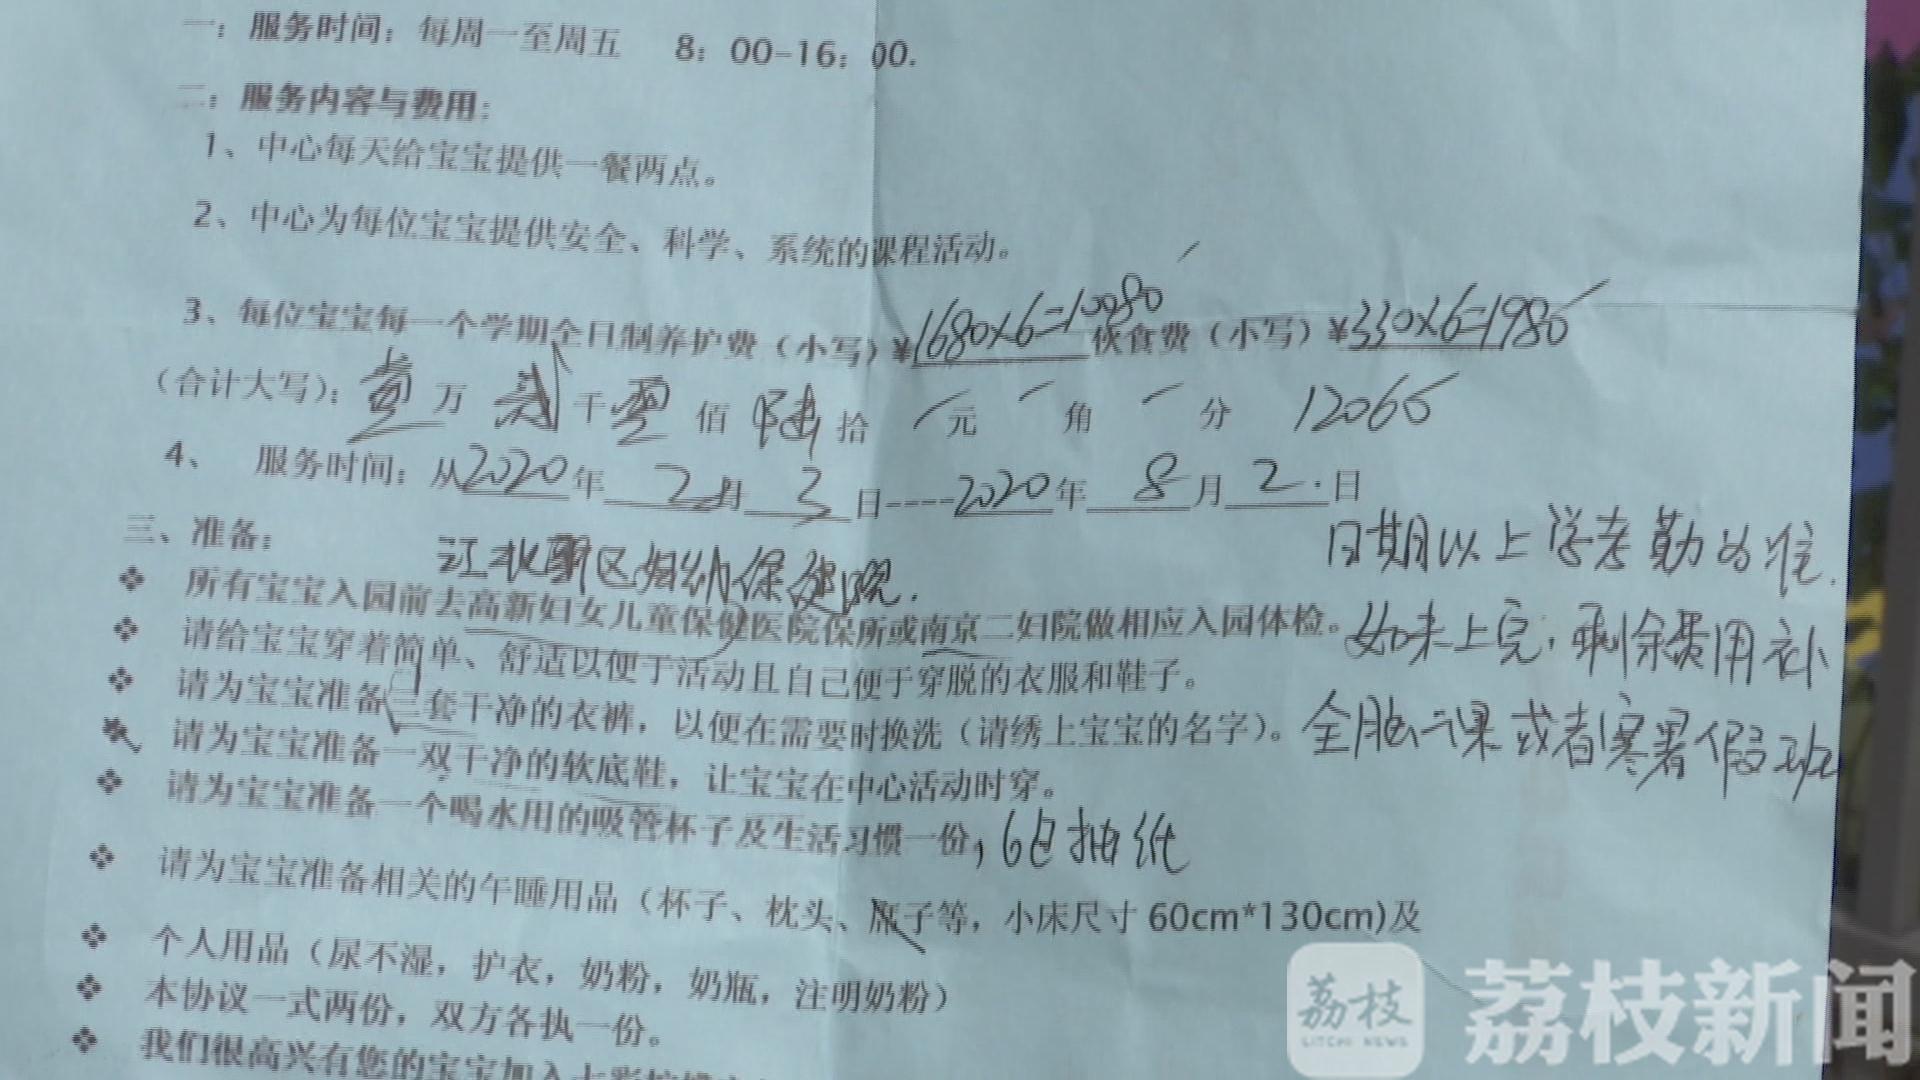 一：服务时间：每周一至周五 8：00-16：00.
二：服务内容与费用：
1、中心每天给宝宝提供一餐两点。
2、中心为每位宝宝提供安全、科学、系统的课程活动。
3、每位宝宝每一个学期全日制养护费（小写）¥1680×6=10080 伙食费（小写）¥330×6=1980
（合计大写）：壹万贰千零佰陆拾 元 角 分 12060
4、 服务时间：从2020年2月3日----2020年8月2.日
日期以上学考勤为准.
三、准备：
江北新区妇幼保健院.
所有宝宝入园前去高新妇女儿童保健医院保所或南京二妇院做相应入园体检。
如未上完，剩余费用补
请给宝宝穿着简单、舒适以便于活动且自己便于穿脱的衣服和鞋子。
请为宝宝准备三套干净的衣裤，以便在需要时换洗（请绣上宝宝的名字）。
全脑课或者寒暑假班
请为宝宝准备一双干净的软底鞋，让宝宝在中心活动时穿。
请为宝宝准备一个喝水用的吸管杯子及生活习惯一份，6包抽纸
请为宝宝准备相关的午睡用品（杯子、枕头、席子等，小床尺寸 60cm*130cm)及
个人用品（尿不湿，护衣，奶粉，奶瓶，注明奶粉）
本协议一式两份，双方各执一份。
我们很高兴有您的宝宝加入
荔枝
LITCHI NEWS
荔枝新闻